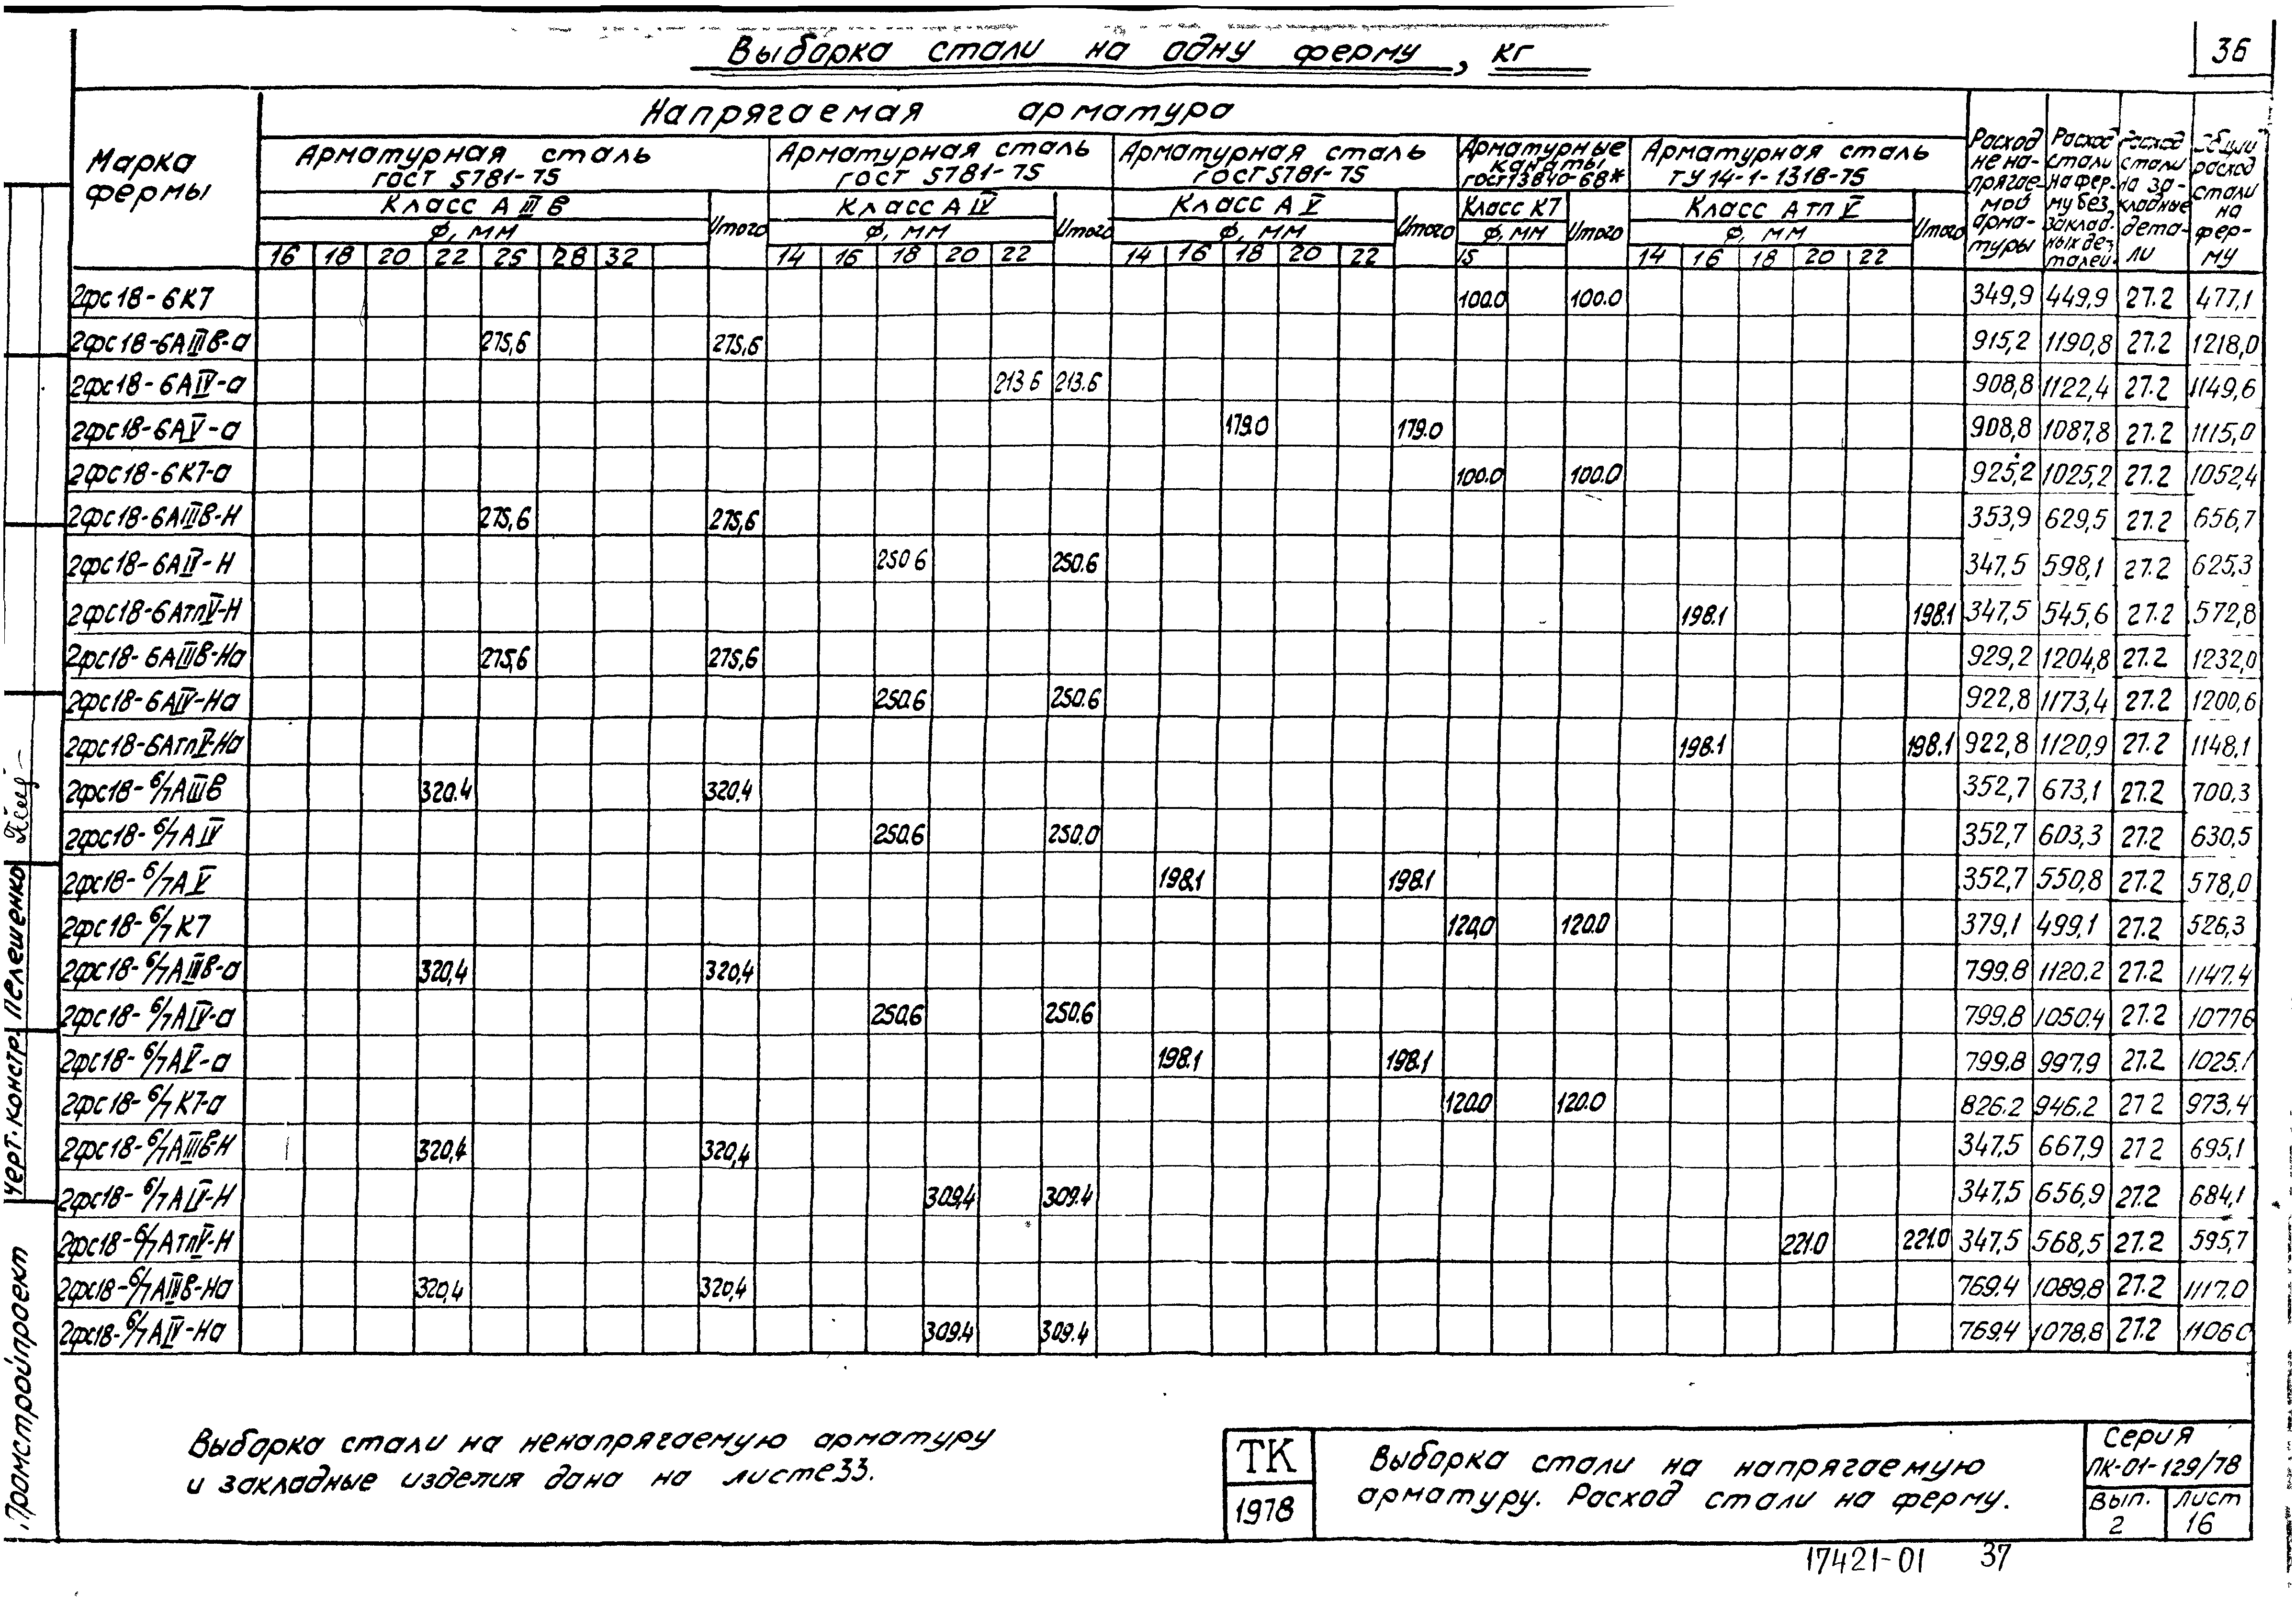 Выборка стали на одну ферму, кг
36
Марка фермы
Напрягаемая арматура
Арматурная сталь ГОСТ 5781-75
Класс А III в
Ф, мм
16 18 20 22 25 28 32
Итого
Арматурная сталь ГОСТ 5781-75
Класс А IV
Ф, мм
14 16 18 20 22
Итого
Арматурная сталь ГОСТ 5781-75
Класс А V
Ф, мм
14 16 18 20 22
Итого
Арматурные канаты ГОСТ 13840-68*
Класс К7
Ф, мм
15
Итого
Арматурная сталь ТУ 14-1-1318-75
Класс Атп V
Ф, мм
14 16 18 20 22
Итого
Расход ненапрягаемой арматуры
Расход стали на ферму без закладных деталей.
Расход стали на закладные детали
Общий расход стали на ферму
2фс18-6К7 100.0 100.0 349,9 449,9 27.2 477,1
2фс18-6АIIIв-а 275,6 275,6 915,2 1190,8 27.2 1218,0
2фс18-6АIV-а 213.6 213.6 908,8 1122,4 27.2 1149,6
2фс18-6АV-а 179.0 179.0 908,8 1087,8 27.2 1115,0
2фс18-6К7-а 100.0 100.0 925,2 1025,2 27.2 1052,4
2фс18-6АIIIв-Н 275,6 275,6 353,9 629,5 27.2 656,7
2фс18-6АIV-Н 250.6 250.6 347,5 598,1 27.2 625,3
2фс18-6АтпV-Н 198.1 198.1 347,5 545,6 27.2 572,8
2фс18-6АIIIв-На 275,6 275,6 929,2 1204,8 27.2 1232,0
2фс18-6АIV-На 250.6 250.6 922,8 1173,4 27.2 1200,6
2фс18-6АтпV-На 198.1 198.1 922,8 1120,9 27.2 1148,1
2фс18-6/7АIIIв 320.4 320,4 352,7 673,1 27.2 700,3
2фс18-6/7АIV 250.6 250.0 352,7 603,3 27.2 630,5
2фс18-6/7АV 198.1 198.1 352,7 550,8 27.2 578,0
2фс18-6/7К7 120,0 120.0 379,1 499,1 27.2 526,3
2фс18-6/7АIIIв-а 320,4 320,4 799,8 1120.2 27.2 1147.4
2фс18-6/7АIV-а 250.6 250,6 799.8 1050.4 27.2 10776
2фс18-6/7АV-а 198.1 198.1 799.8 997.9 27.2 1025.1
2фс18-6/7К7-а 120.0 120.0 826.2 946.2 27 2 973,4
2фс18-6/7АIIIв-Н 320,4 320,4 347,5 667,9 27 2 695,1
2фс18-6/7АIV-Н 309,4 309.4 347,5 656,9 27.2 684,1
2фс18-6/7АтпV-Н 221.0 221.0 347,5 568,5 27.2 595,7
2фс18-6/7АIIIв-На 320,4 320,4 769.4 1089,8 27.2 1117.0
2фс18-6/7АIV-На 309.4 309.4 769.4 1078,8 27.2 1106 0
Выборка стали на ненапрягаемую арматуру
и закладные изделия дана на листе 33.
ТК
1978
Выборка стали на напрягаемую
арматуру. Расход стали на ферму.
Серия
ПК-01-129/78
Вып. 2
Лист 16
17421-01 37
Черт.-констр. Пелешенко
Промстройпроект